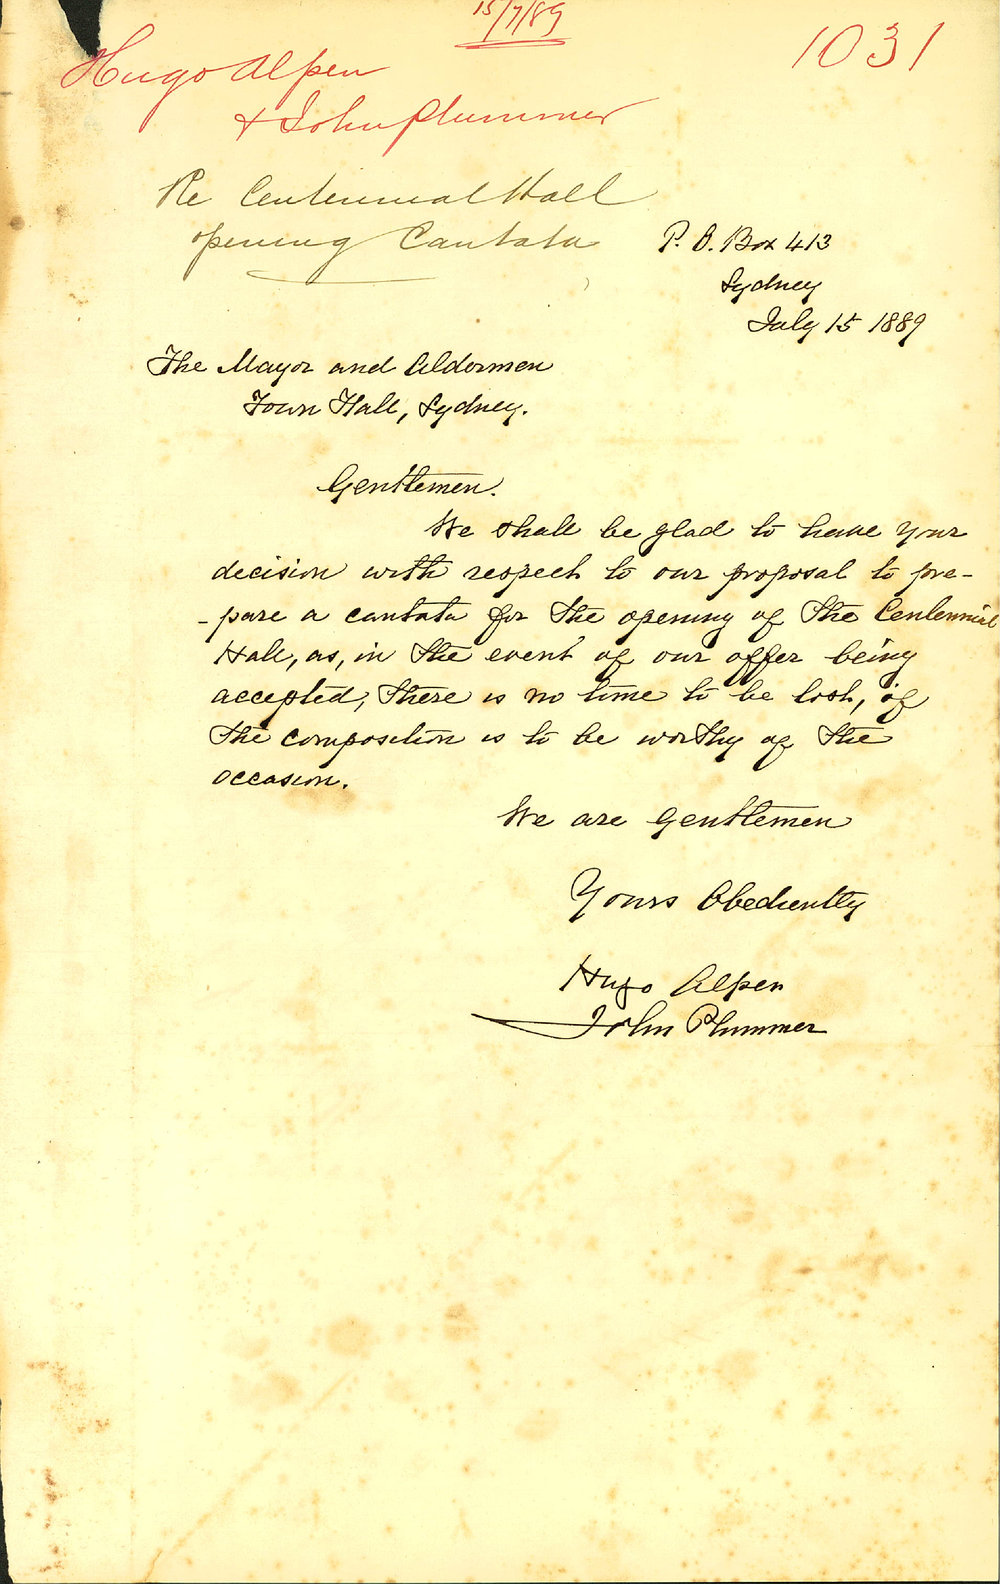 15/7/89
1031
Hugo Alpen
& John Plummer
Re Centennial Hall
opening Cantata
P. O. Box 413
Sydney
July 15 1889
The Mayor and Aldermen
Town Hall, Sydney.
Gentlemen.
We shall be glad to have your
decision with respect to our proposal to pre-
-pare a cantata for the opening of the Centennial
Hall, as, in the event of our offer being
accepted, there is no time to be lost, if
the composition is to be worthy of the
occasion.
We are Gentlemen
Yours Obediently
Hugo Alpen
John Plummer